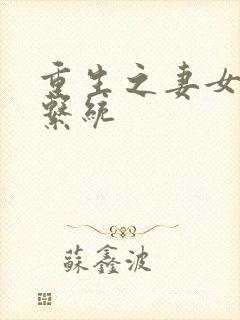 重生之妻女
繫統
蘇鑫波